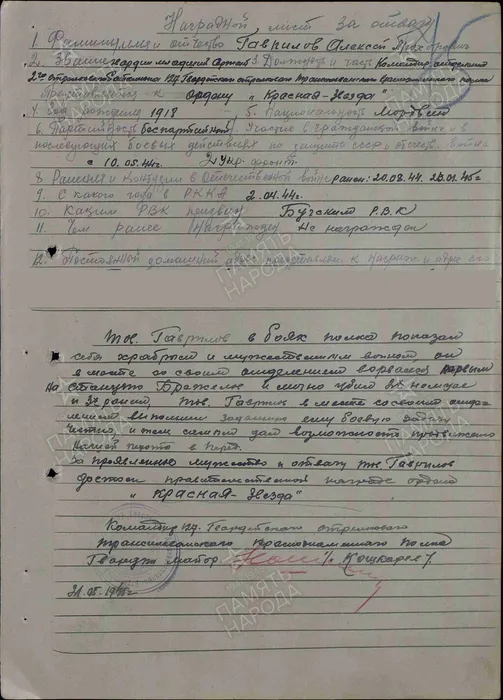 Наградной лист за отвагу
1. Фамилия имя отчество Гаврилов Алексей
2. Звание гвардии младший 3. Должность и часть Командир отделения
2го стрелкового батальона 127 Гвардейского стрелкового Краснознаменного полка
Представляется к Ордену "Красная-Звезда"
4. Год рождения 1918 5. Национальность Мордвин
6. Партийность беспартийный Участие в гражданской войне и в
последующих боевых действиях по защите СССР, отечеств. война
с 10.05.44г. 2 Укр. фронт.
8. Ранения и контузии в Отечественной войне ранен: 20.08.44. 28.01.45г
9. С какого года в РККА 2.04.44г.
10. Каким РВК призван Бугским Р.В.К
11. Чем ранее награжден Не награжден
12. Постоянный домашний адрес представляем. к награде и адрес его
ПАМЯТЬ НАРОДА
тов. Гаврилов в боях полка показал
себя храбрым и мужественным воином он
в месте со своим отделением ворвался первым
на станцую и лично убил немцев
и ранил тов. Гаврилов в месте со своим отде-
лением выполнил заданную ему боевую задачу
честно, и тем самым дал возможность продвижению
нашей пехоте в перед.
За проявленное мужество и отвагу тов. Гаврилов
достоин правительственной награде ордена
"Красная-Звезда"
Командир 127 Гвардейского стрелкового
Краснознаменного полка
Гвардии майор /Кошкарев/
31.05.1945г
ПАМЯТЬ НАРОДА